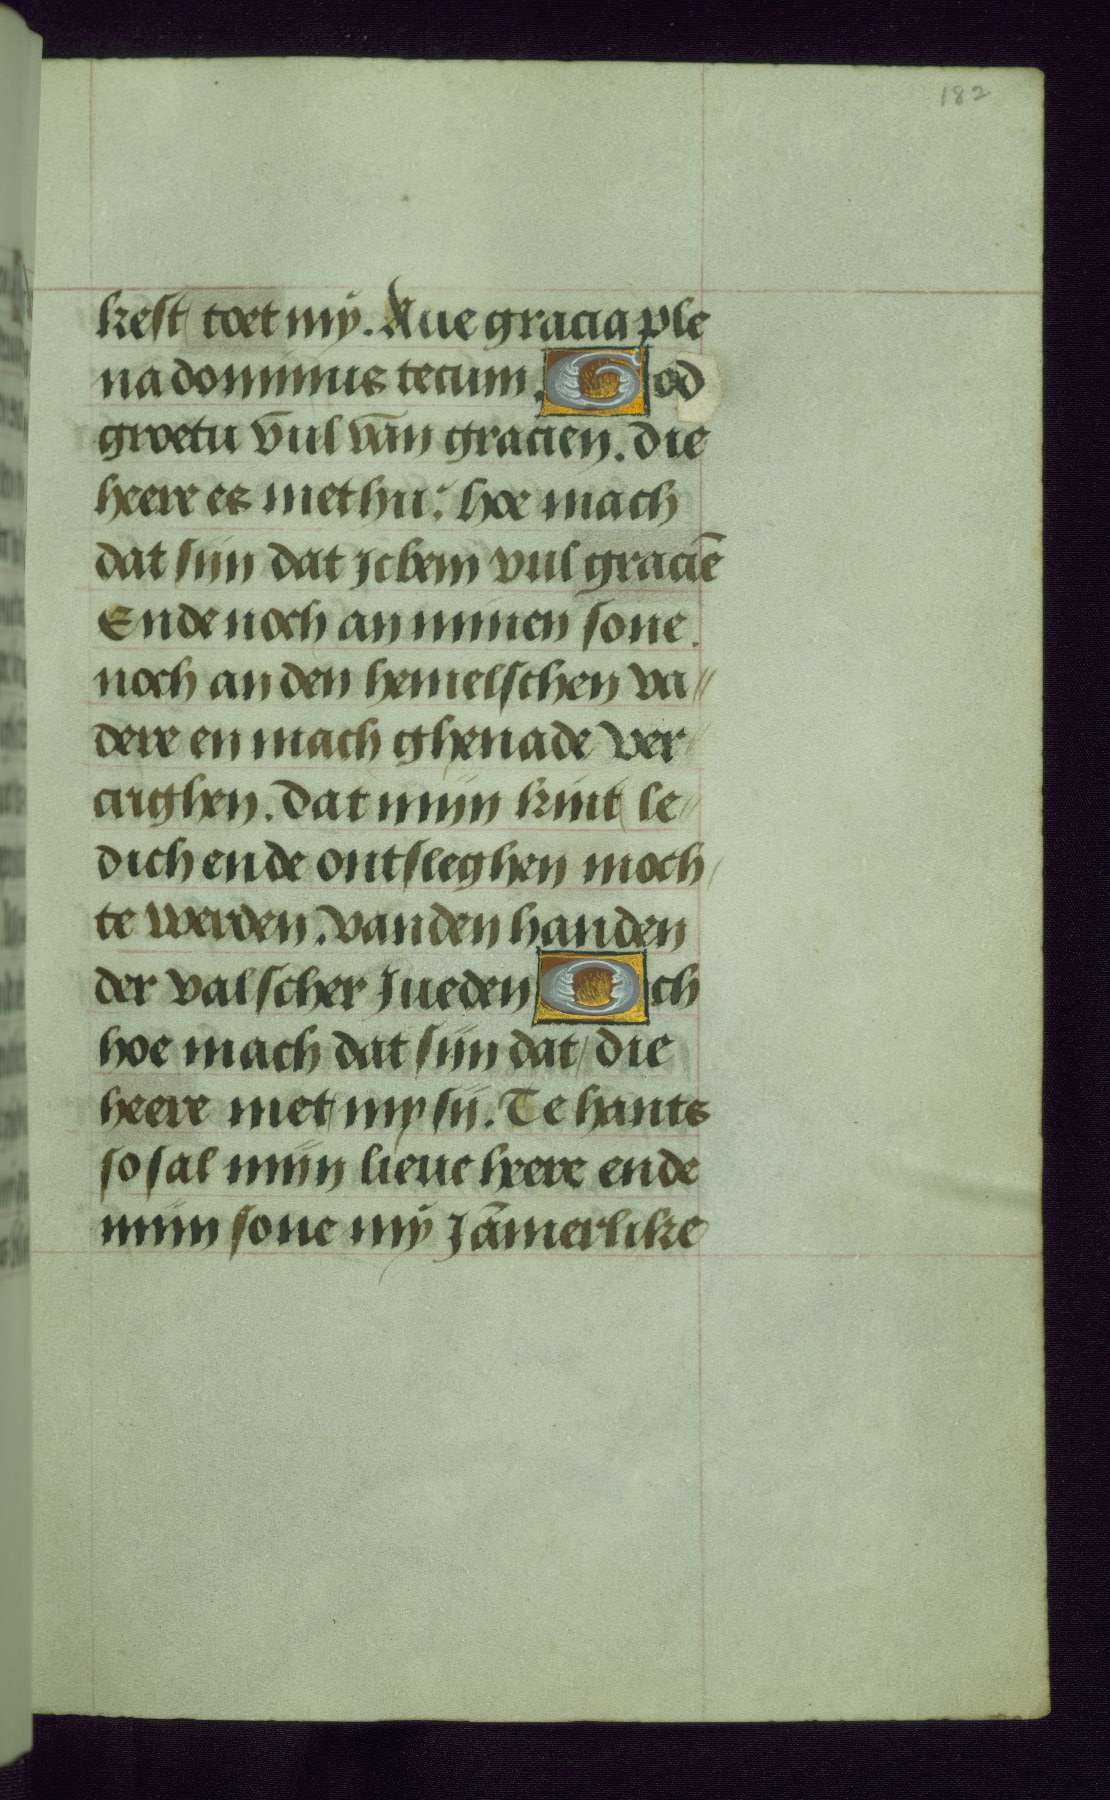 182
kest toet mÿ. Aue gracia ple
na dominus tecum. God
groetu vūl vān gracien. die
heere es met hu. hoe mach
dat sijn dat Jc bem vul graciē
Ende noch an minen sone.
noch an den hemelschen va//
dere en mach ghenade ver/
crighen. dat mijn kint le//
dich ende ontsleghen moch/
te werden. van den handen
der valscher Jueden Och
hoe mach dat sijn dat die
heere met my sij. Te hants
so sal mijn lieue heere ende
mijn sone mÿ Jāmerlike